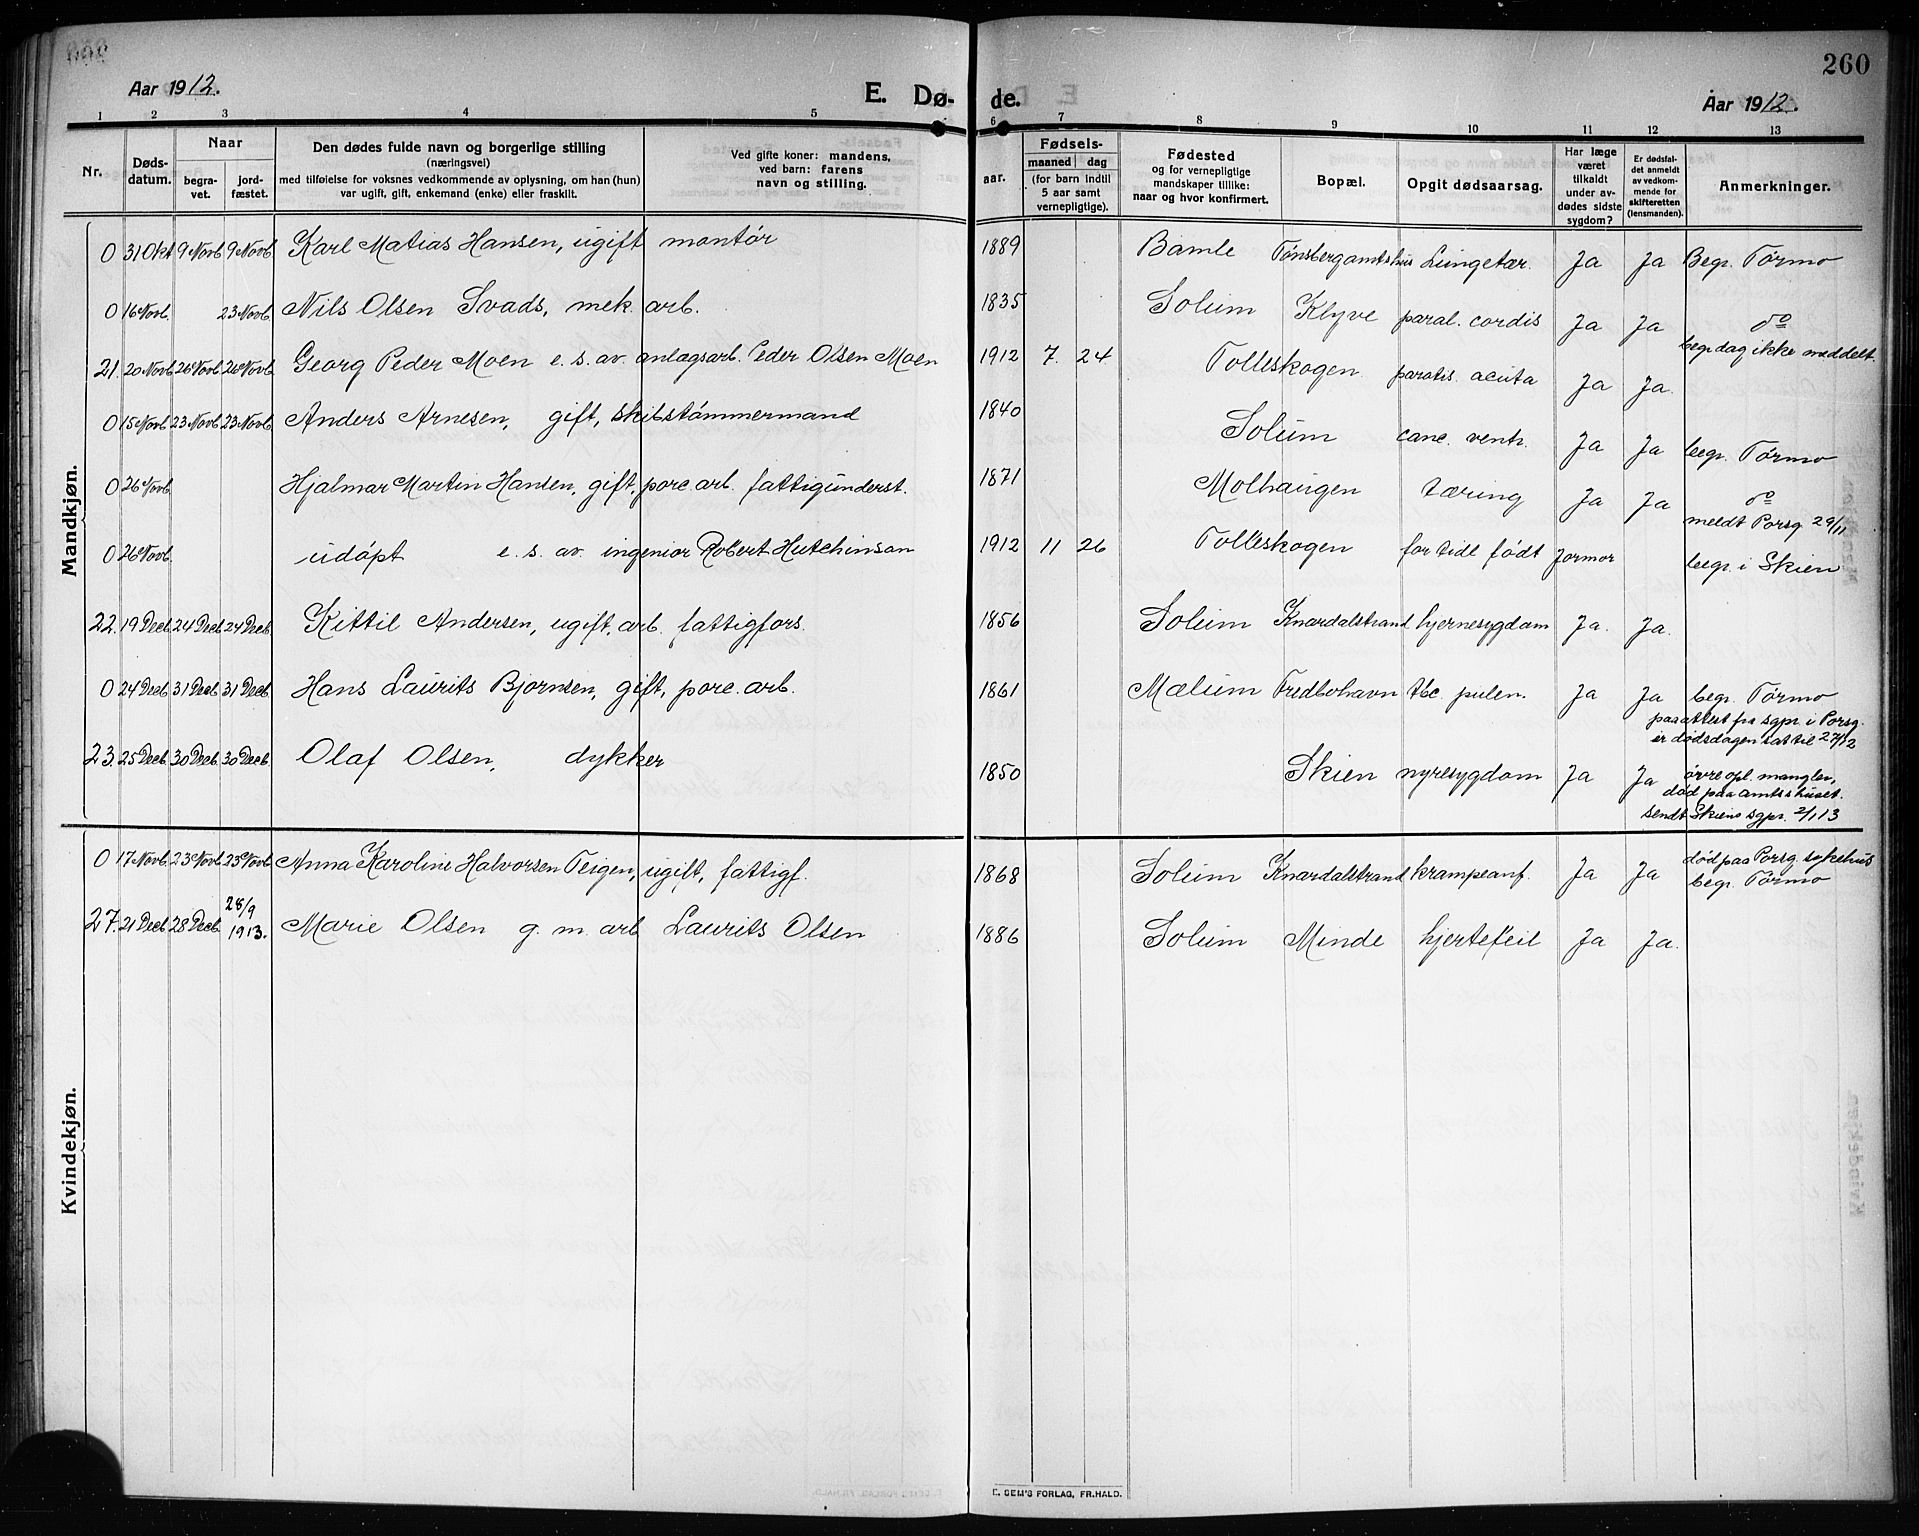 260
Aar 1912.
E. Dø-
de.
Aar 1912.
1 2 3 4 5 6 7 8 9 10 11 12 13
Nr.
Døds-
datum.
Naar
begra-
vet.
jord-
fæstet.
Den dødes fulde navn og borgerlige stilling
(næringsvei)
med tilføielse for voksnes vedkommende av oplysning, om han (hun)
var ugift, gift, enkemand (enke) eller fraskilt.
Ved gifte koner: mandens,
ved barn: farens
navn og stilling.
Fødsels-
aar.
maaned
dag
(for barn indtil
5 aar samt
vernepligtige).
Fødested
og for vernepligtige
mandskaper tillike:
naar og hvor konfirmert.
Bopæl.
Opgit dødsaarsag.
Har læge
været
tilkaldt
under av-
dødes sidste
sygdom?
Er dødsfal-
det anmeldt
av vedkom-
mende for
skifteretten
(lensmanden).
Anmerkninger.
Mandkjøn.
0 31 Okt 9 Novb 9 Novb. Karl Matias Hansen, ugift montør 1889 Bamle Tønsberg amtshus Lungetær. Ja Ja Begr. Tørmo
0 16 Novb. 23 Novb. Nils Olsen Svads, mek. arb. 1835 Solum Klyve paral. cordis Ja Ja do
21. 20 Novb. 26 Novb. 26 Novb. Georg Peder Moen e. s. av. anlægsarb. Peder Olsen Moen 1912 7. 24 Tolleskogen parotis. acuta Ja Ja. begr.dag ikke meddelt.
0 15 Novb. 23 Novb. 23 Novb. Anders Arnesen, gift, skibstømmermand 1840 Solum canc. ventr. Ja Ja begr. Tørmo
0 26 Novb. Hjalmar Martin Hansen, gift, porc. arb. fattigunderst. 1871 Molhaugen tæring Ja Ja do
meldt Porsg. 29/11
0 26 Novb. udøpt e. s. av. ingeniør Robert Hutchinson 1912 11 26 Tolleskogen for tidl født Jormor begr. i Skien
22. 19 Decb. 24 Decb. 24 Decb. Kittil Andersen, ugift, arb. fattigfors. 1856 Solum Knardalstrand hjernesygdom Ja. Ja.
0 24 Decb. 31 Decb. 31 Decb. Hans Laurits Bjørnsen, gift, porc. arb. 1861 Mælum Fredbohavn tbc. pulm. Ja Ja begr. Tørmo
paa attest fra sgpr. i Porsg.
er dødsdagen sat til 27/12
23. 25 Decb. 30 Decb. 30 Decb. Olaf Olsen, dykker 1850 Skien nyresygdom Ja Ja øvre opl. mangler,
død paa amtshuset.
sendt Skiens sgpr. 2/1 13
Kvindekjøn.
0 17 Novb. 23 Novb. 23 Novb. Anna Karoline Halvorsen Teigen, ugift, fattigf. 1868 Solum Knardalstrand krampeanf. Ja Ja død paa Porsg. sykehus
begr. Tørmo
27. 21 Decb. 28 Decb. 28/9 1913. Marie Olsen g. m. arb. Laurits Olsen 1886 Solum Minde hjertefeil Ja Ja.
E. SEM'S FORLAG, FR.HALD.